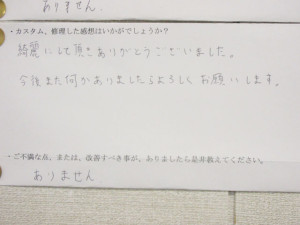 ありません.
・カスタム、修理した感想はいかがでしょうか？
綺麗にして頂きありがとうございました。
今後また何かありましたらよろしくお願いします。
・ご不満な点、または、改善すべき事が、ありましたら是非教えてください。
ありません